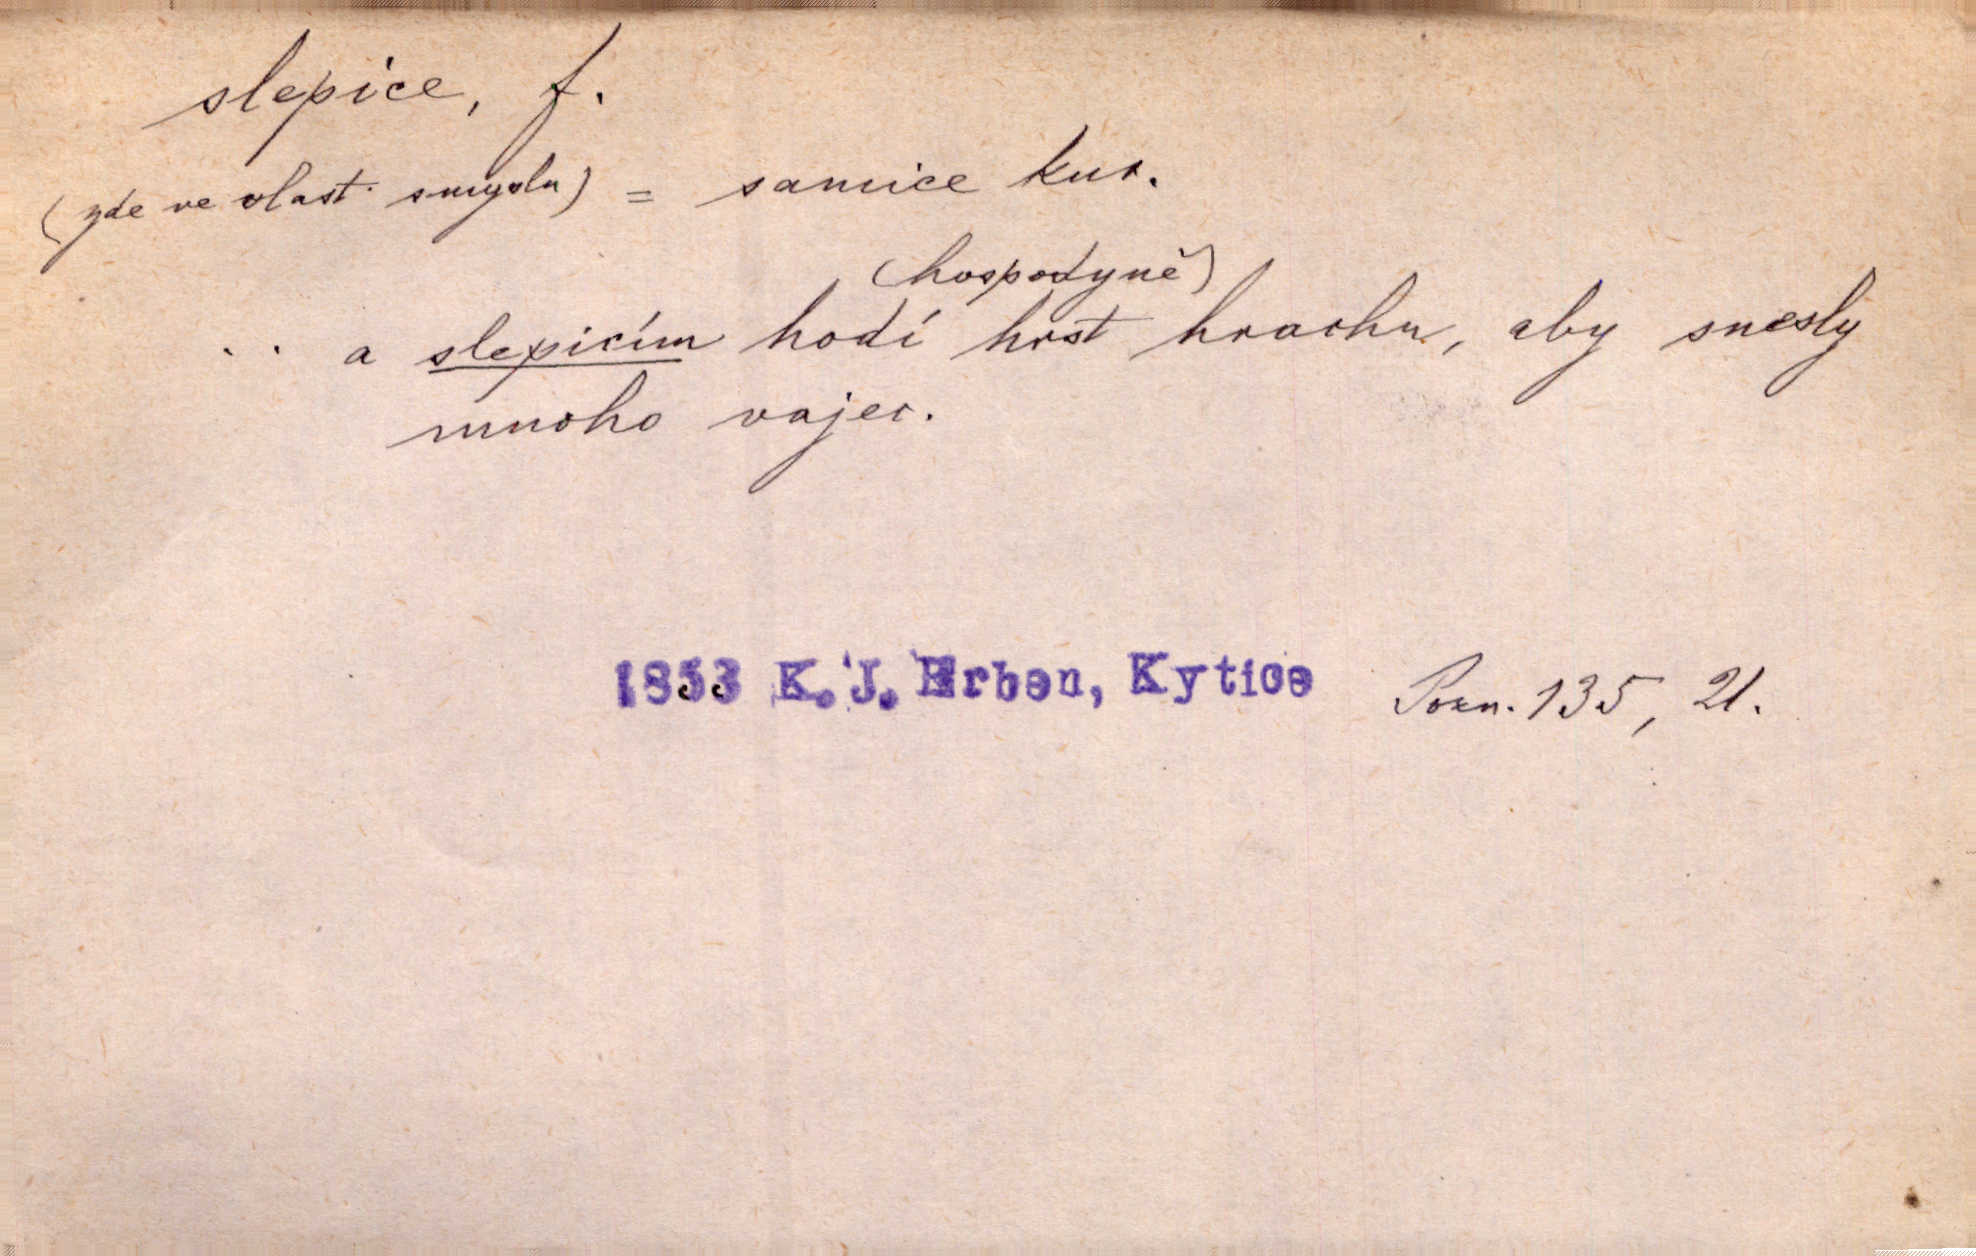 slepice, f.
(zde ve vlast. smyslu) = samice kur.
(hospodyně)
. . a slepicím hodí hrst hrachu, aby snesly
mnoho vajec.
1853 K. J. Erben, Kytice Pozn. 135, 21.